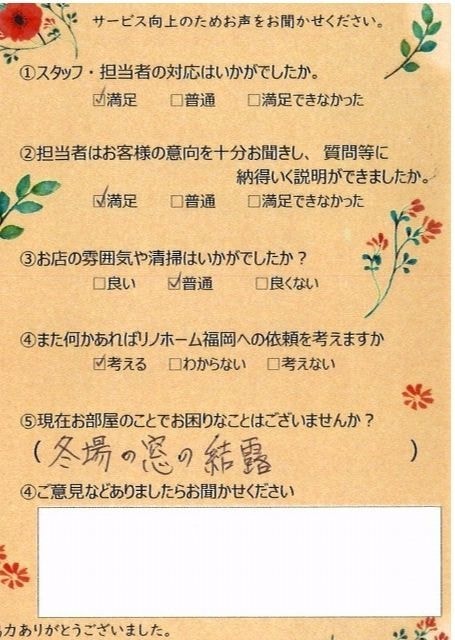 サービス向上のためお声をお聞かせください。
①スタッフ・担当者の対応はいかがでしたか。
☑満足 □普通 □満足できなかった
②担当者はお客様の意向を十分お聞きし、質問等に
納得いく説明ができましたか。
☑満足 □普通 □満足できなかった
③お店の雰囲気や清掃はいかがでしたか？
□良い ☑普通 □良くない
④また何かあればリノホーム福岡への依頼を考えますか
☑考える □わからない □考えない
⑤現在お部屋のことでお困りなことはございませんか？
(冬場の窓の結露)
④ご意見などありましたらお聞かせください
力ありがとうございました。